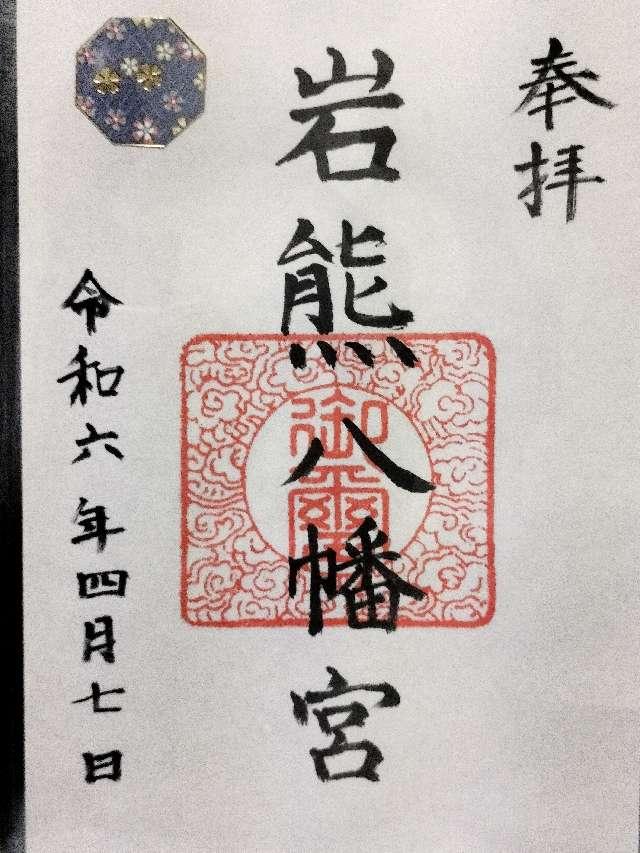 奉拝
岩熊八幡宮
御璽
令和六年四月七日